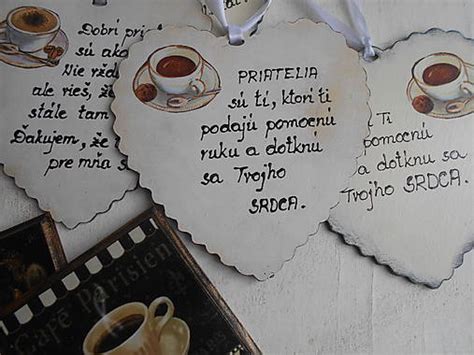 Dobrí pri
sú ako
Nie vžd
ale vieš, ž
stále tam
Ďakujem, že
pre mňa s
PRIATELIA
sú tí, ktorí ti
podajú pomocnú
ruku a dotknú
sa Tvojho
SRDCA.
Ti
pomocnú
a dotknú sa
Tvojho SRDCA.
Café Parisien